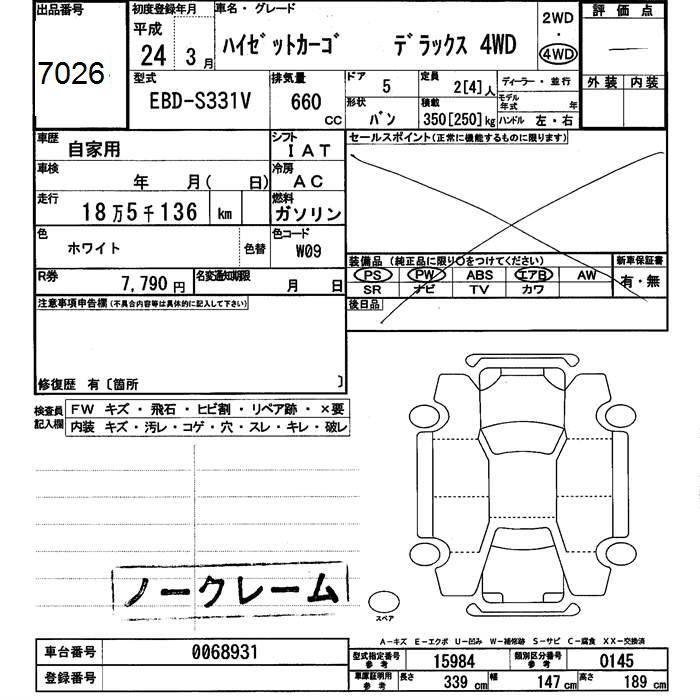 出品番号
7026
初度登録年月
平成
24 3月
車名・グレード
ハイゼットカーゴ デラックス 4WD
2WD
・
4WD
評価点
外装 内装
型式
EBD-S331V
排気量
660
CC
ドア
5
定員
2[4]人
形状
バン
積載
350[250]kg
ディーラー・並行
モデル年式 年
ハンドル 左・右
車歴
自家用
シフト
IAT
車検
年 月( 日)
冷房
AC
走行
18万5千136 km
燃料
ガソリン
色
ホワイト
色替
色コード
W09
R券
7,790円
名変通知期限
月 日
セールスポイント(正常に機能するものに限ります)
装備品 (純正品に限り○をつけてください)
PS PW ABS エアB AW
SR ナビ TV カワ
新車保証書
有・無
後日品
注意事項申告欄(不具合内容等は具体的に記入して下さい)
修復歴 有〔箇所 〕
検査員記入欄
FW キズ・飛石・ヒビ割・リペア跡・×要
内装 キズ・汚レ・コゲ・穴・スレ・キレ・破レ
ノークレーム
スペア
A-キズ E-エクボ U-凹み W-補修跡 S-サビ C-腐食 XX-交換済
車台番号 0068931
登録番号
型式指定番号 参考 15984
類別区分番号 参考 0145
車庫証明用 参考 長さ 339cm 幅 147cm 高さ 189cm